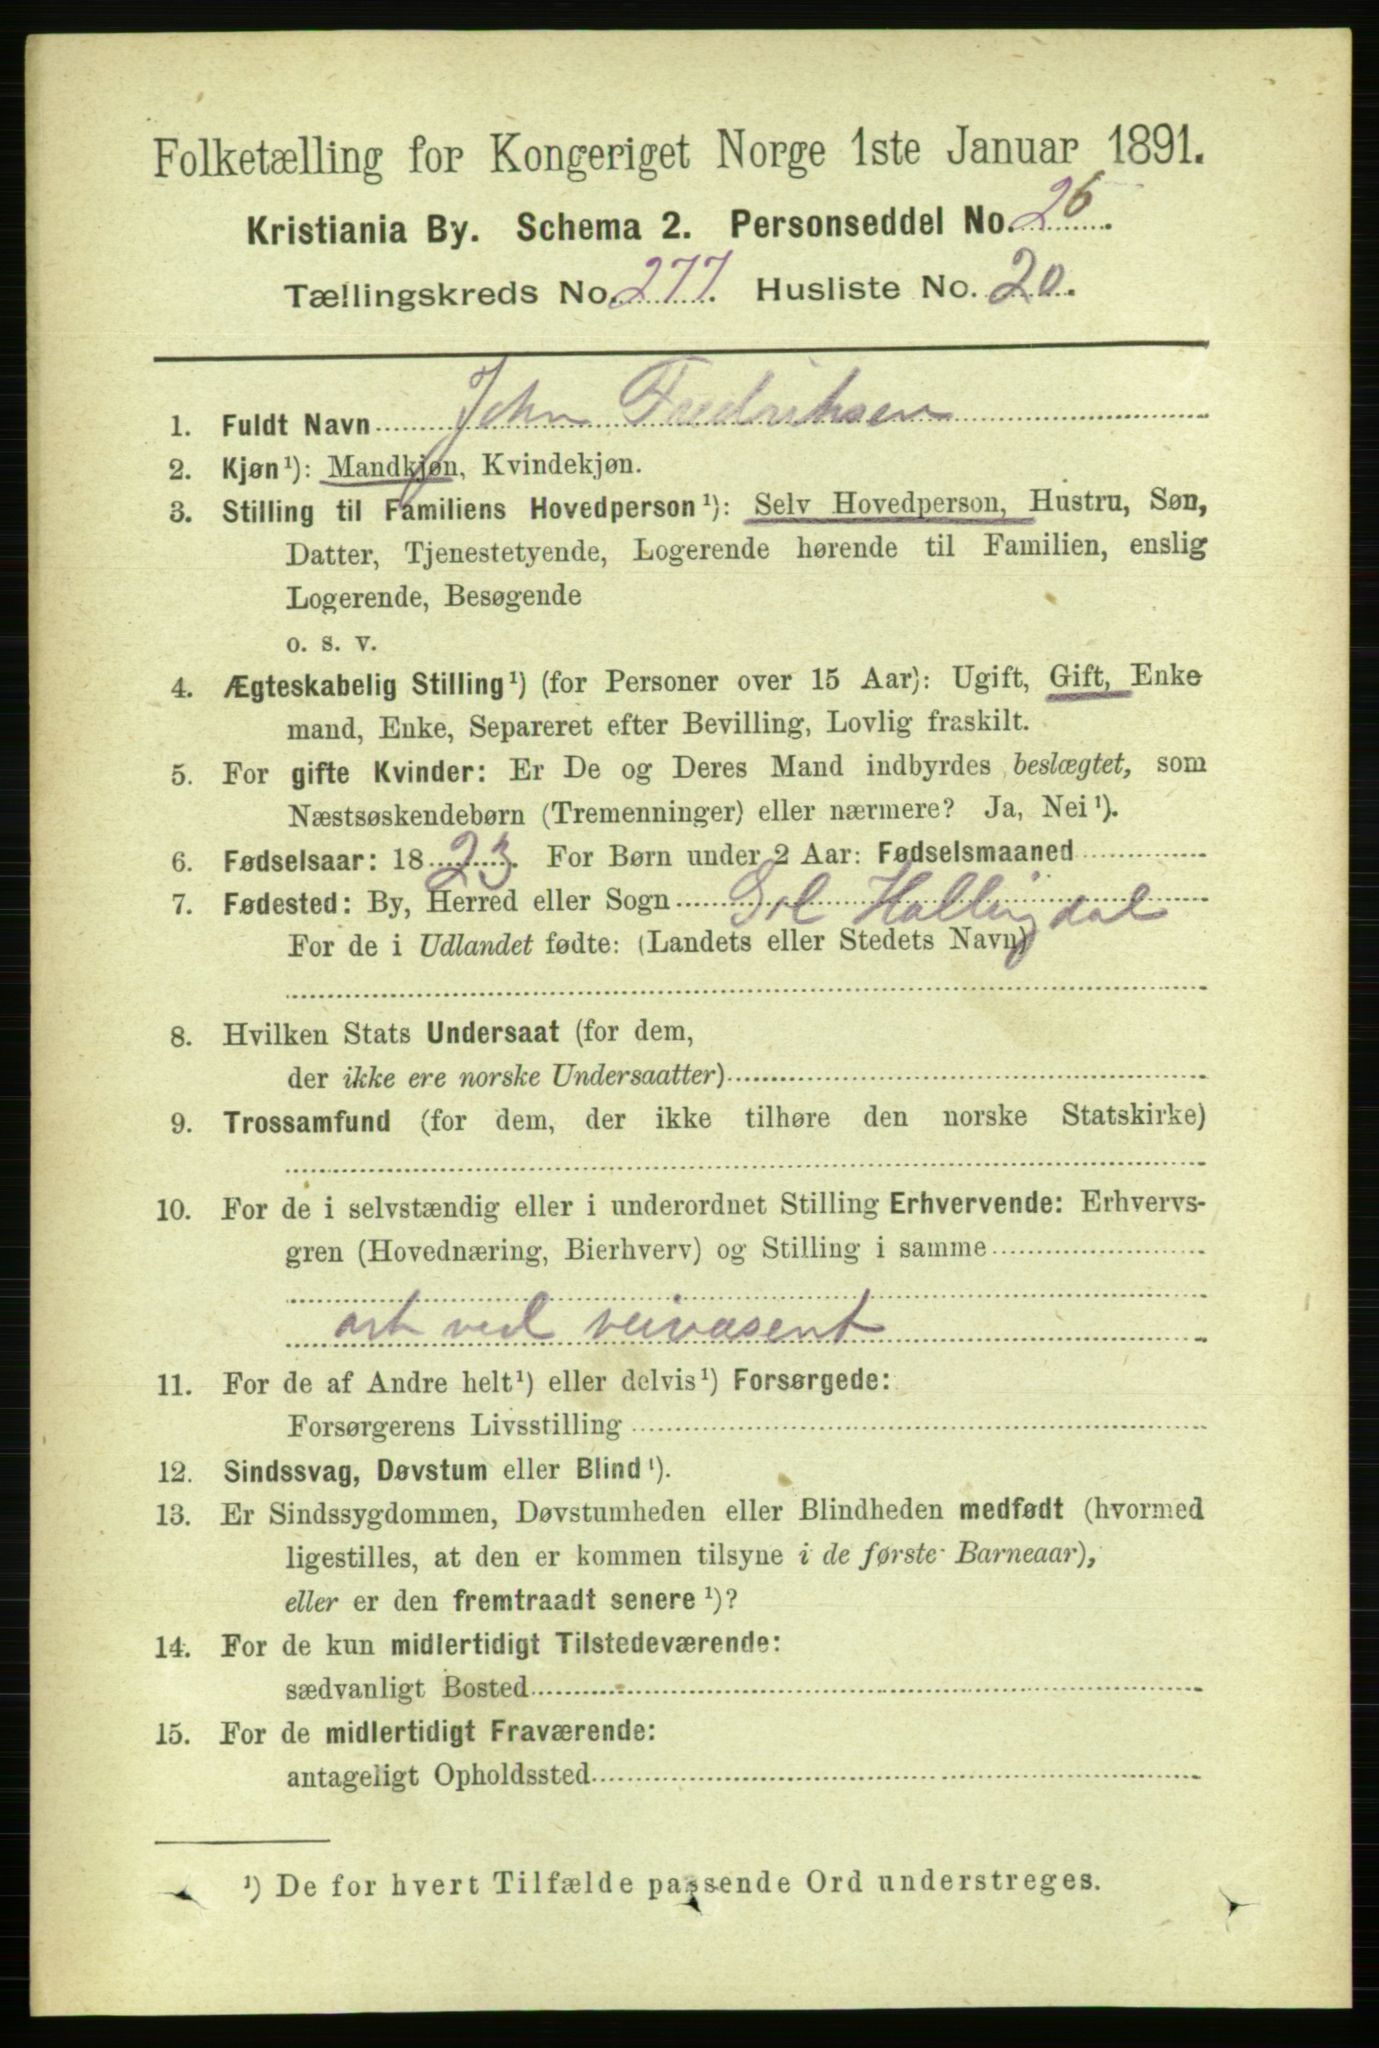 Folketælling for Kongeriget Norge 1ste Januar 1891.
Kristiania By. Schema 2. Personseddel No. 26.
Tællingskreds No. 277. Husliste No. 20.
1. Fuldt Navn John Fredriksen
2. Kjøn¹): Mandkjøn, Kvindekjøn.
3. Stilling til Familiens Hovedperson¹): Selv Hovedperson, Hustru, Søn,
Datter, Tjenestetyende, Logerende hørende til Familien, enslig
Logerende, Besøgende
o. s. v.
4. Ægteskabelig Stilling¹) (for Personer over 15 Aar): Ugift, Gift, Enke
mand, Enke, Separeret efter Bevilling, Lovlig fraskilt.
5. For gifte Kvinder: Er De og Deres Mand indbyrdes beslægtet, som
Næstsøskendebørn (Tremenninger) eller nærmere? Ja, Nei¹).
6. Fødselsaar: 1823. For Børn under 2 Aar: Fødselsmaaned
7. Fødested: By, Herred eller Sogn Gol Hallingdal
For de i Udlandet fødte: (Landets eller Stedets Navn)
8. Hvilken Stats Undersaat (for dem,
der ikke ere norske Undersaatter)
9. Trossamfund (for dem, der ikke tilhøre den norske Statskirke)
10. For de i selvstændig eller i underordnet Stilling Erhvervende: Erhvervs-
gren (Hovednæring, Bierhverv) og Stilling i samme
arb ved veivæsent
11. For de af Andre helt¹) eller delvis¹) Forsørgede:
Forsørgerens Livsstilling
12. Sindssvag, Døvstum eller Blind¹).
13. Er Sindssygdommen, Døvstumheden eller Blindheden medfødt (hvormed
ligestilles, at den er kommen tilsyne i de første Barneaar),
eller er den fremtraadt senere¹)?
14. For de kun midlertidigt Tilstedeværende:
sædvanligt Bosted
15. For de midlertidigt Fraværende:
antageligt Opholdssted
¹) De for hvert Tilfælde passende Ord understreges.